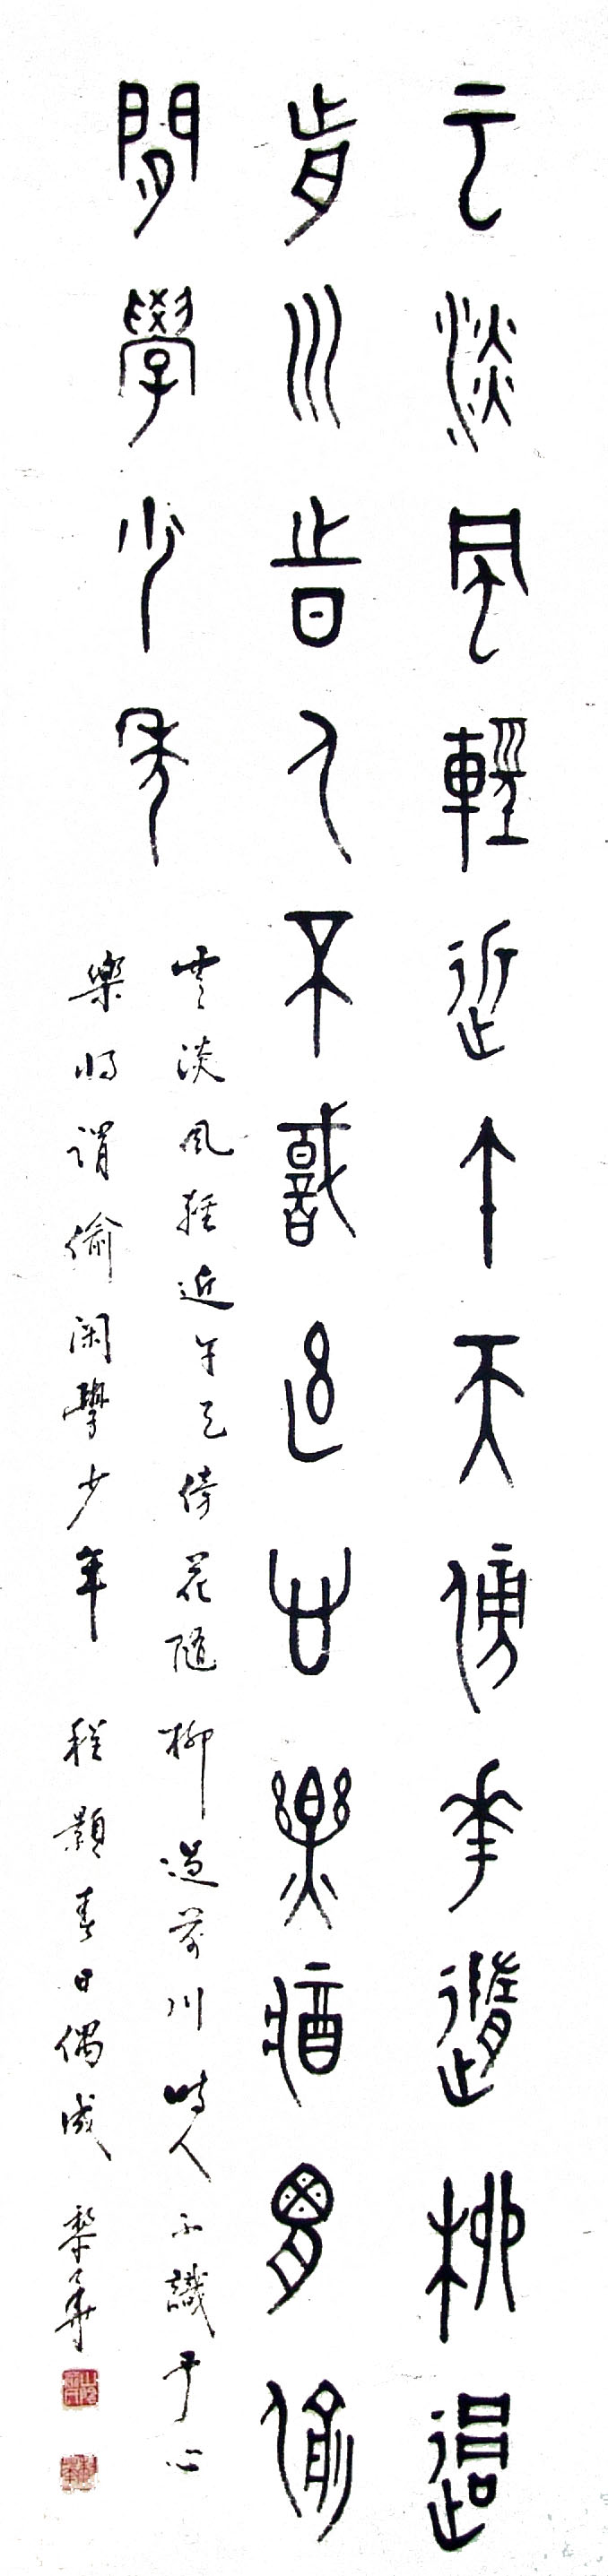 云淡風輕近午天傍華隨柳過
前川時人不識予心樂將胃偷
閒學少年
雲淡風輕近午天傍花隨柳過前川時人不識予心
樂將謂偷閑學少年 程顥春日偶成